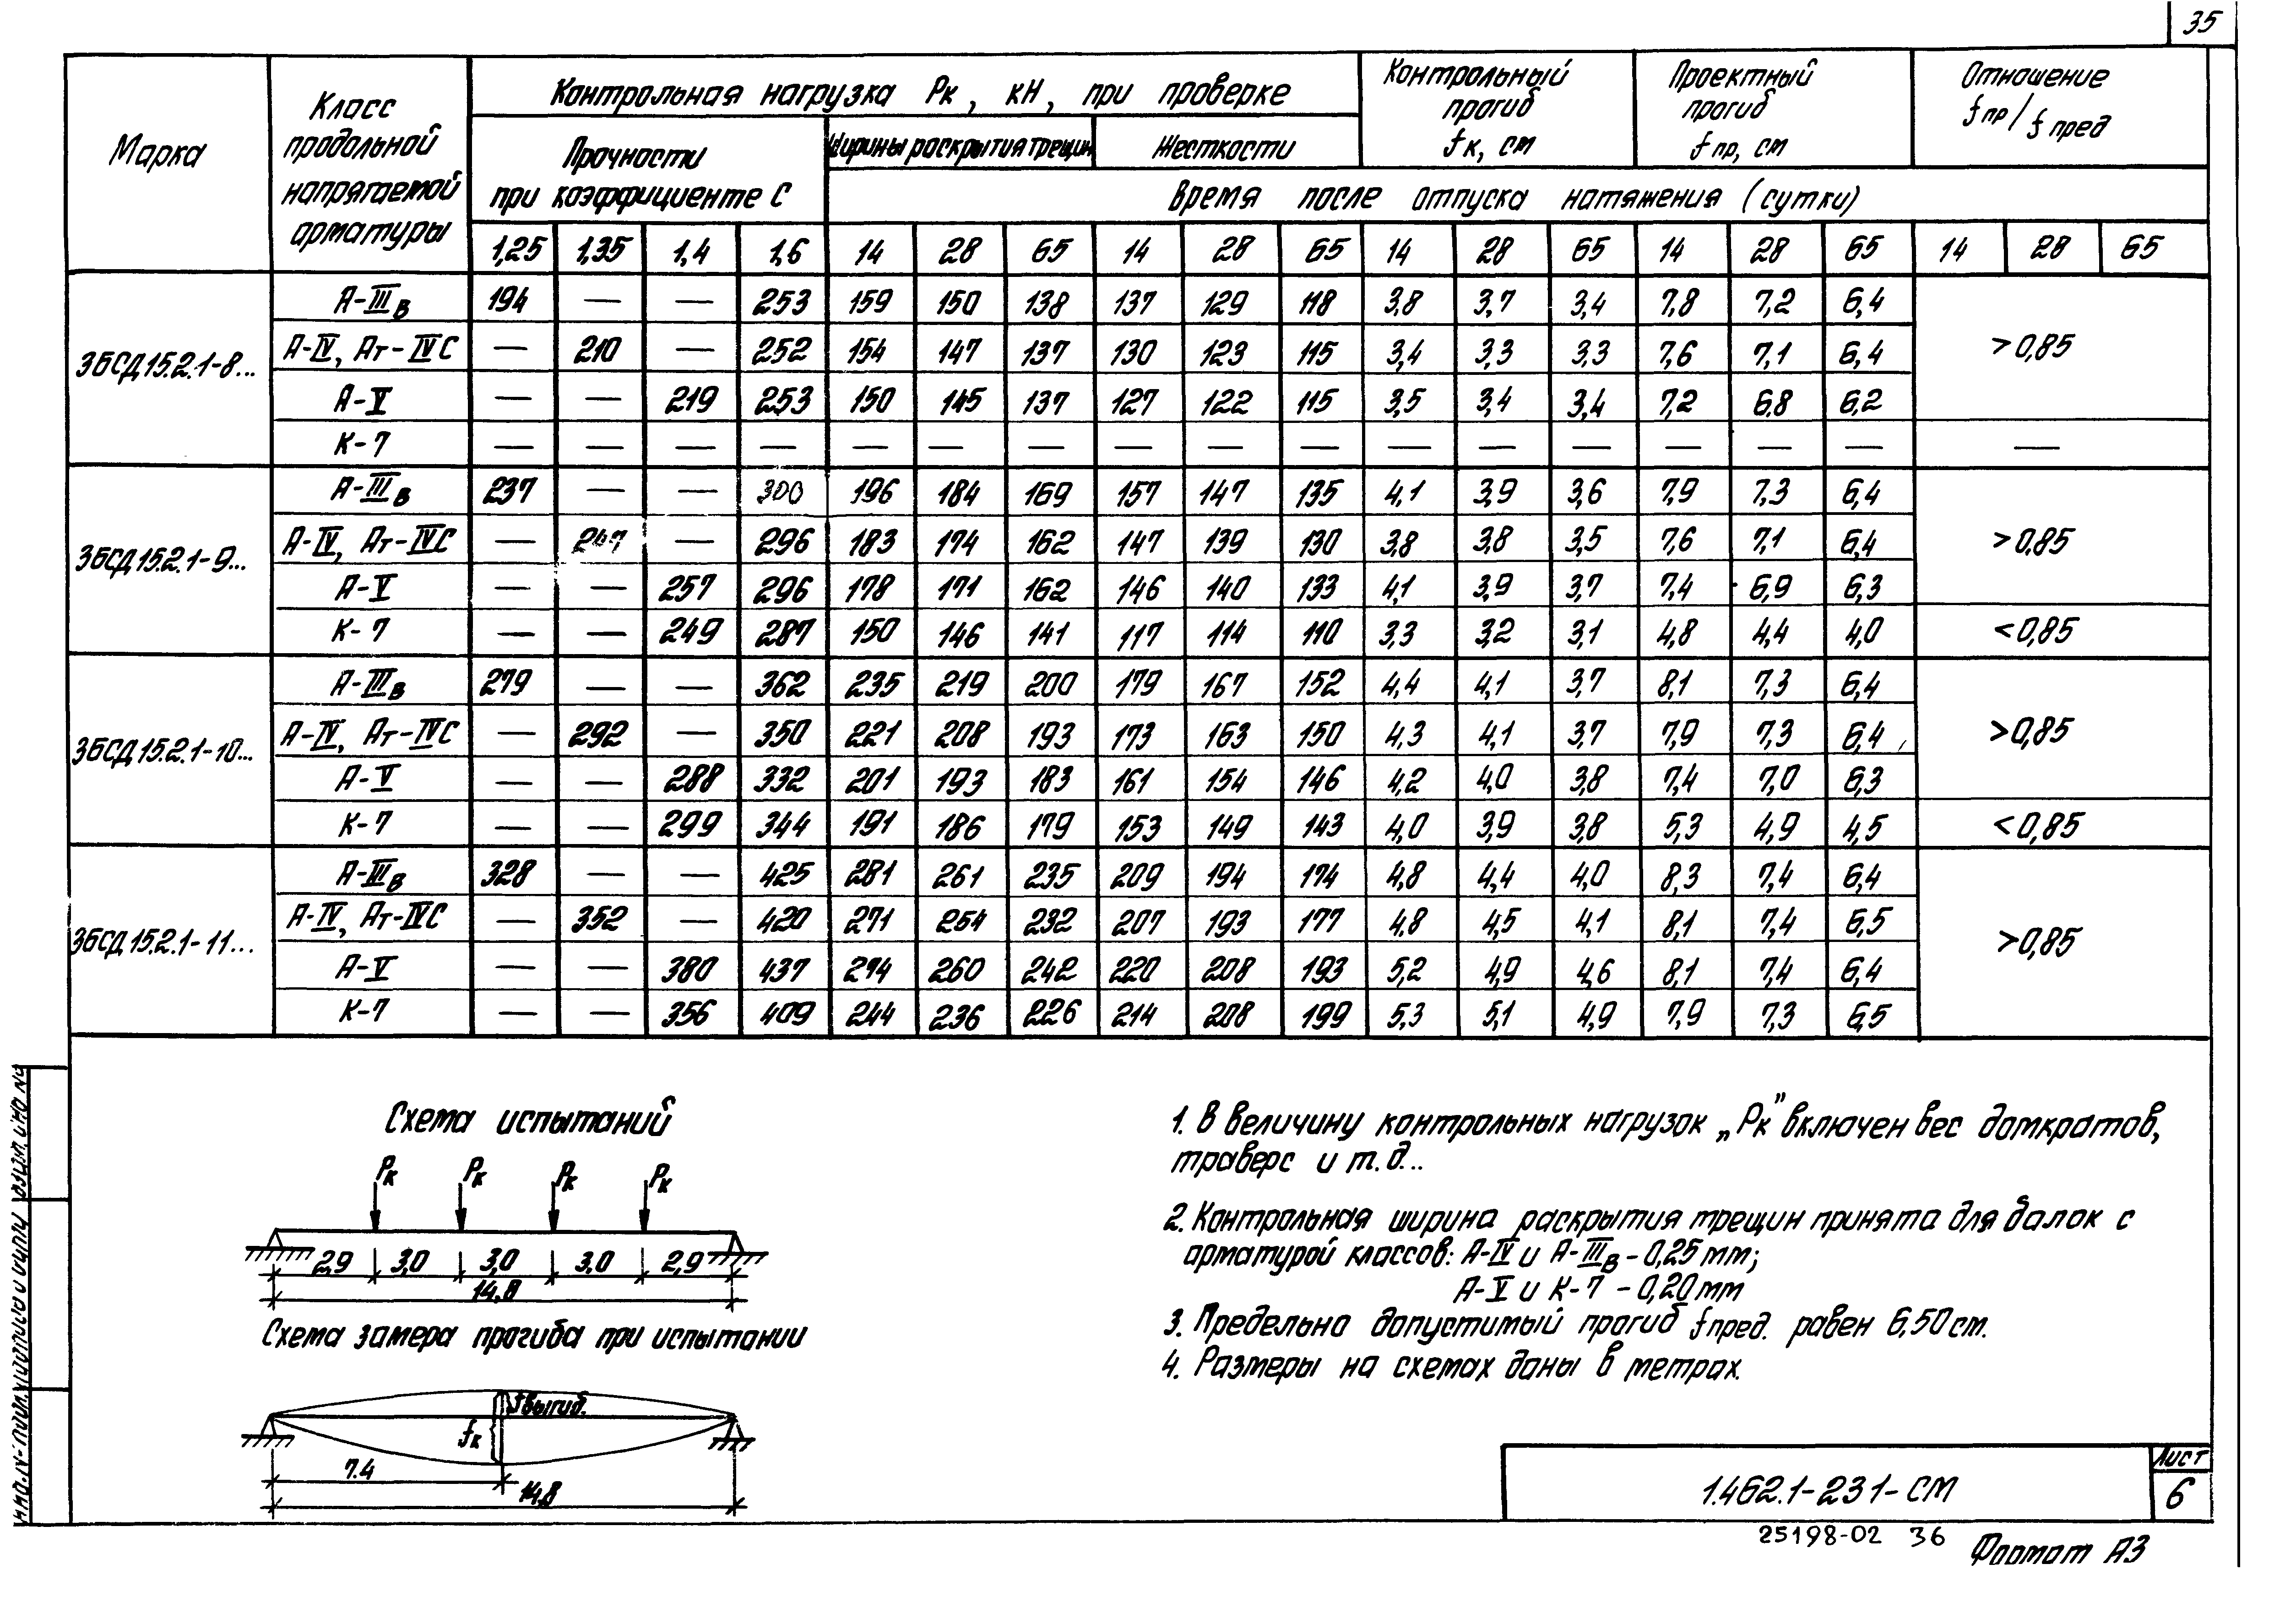 35
Марка
Класс продольной напрягаемой арматуры
Контрольная нагрузка Рк, кН, при проверке
Контрольный прогиб fк, см
Проектный прогиб fпр, см
Отношение fпр/fпред
Прочности при коэффициенте С
Ширины раскрытия трещин
Жесткости
Время после отпуска натяжения (сутки)
1,25 1,35 1,4 1,6 14 28 65 14 28 65 14 28 65 14 28 65 14 28 65
3БСД15.2.1-8...
А-IIIв 194 — — 253 159 150 138 137 129 118 3,8 3,7 3,4 7,8 7,2 6,4
А-IV, Ат-IVС — 210 — 252 154 147 137 130 123 115 3,4 3,3 3,3 7,6 7,1 6,4
>0,85
А-V — — 219 253 150 145 137 127 122 115 3,5 3,4 3,4 7,2 6,8 6,2
К-7 — — — — — — — — — — — — — — — — —
3БСД15.2.1-9...
А-IIIв 237 — — 300 196 184 169 157 147 135 4,1 3,9 3,6 7,9 7,3 6,4
А-IV, Ат-IVС — — 296 183 174 162 147 139 130 3,8 3,8 3,5 7,6 7,1 6,4
>0,85
А-V — — 257 296 178 171 162 146 140 133 4,1 3,9 3,7 7,4 6,9 6,3
К-7 — — 249 287 150 146 141 117 114 110 3,3 3,2 3,1 4,8 4,4 4,0 <0,85
3БСД15.2.1-10...
А-IIIв 279 — — 362 235 219 200 179 167 152 4,4 4,1 3,7 8,1 7,3 6,4
А-IV, Ат-IVС — 292 — 350 221 208 193 173 163 150 4,3 4,1 3,7 7,9 7,3 6,4
>0,85
А-V — — 288 332 201 193 183 161 154 146 4,2 4,0 3,8 7,4 7,0 6,3
К-7 — — 299 344 191 186 179 153 149 143 4,0 3,9 3,8 5,3 4,9 4,5 <0,85
3БСД15.2.1-11...
А-IIIв 328 — — 425 281 261 235 209 194 174 4,8 4,4 4,0 8,3 7,4 6,4
А-IV, Ат-IVС — 352 — 420 271 254 232 207 193 177 4,8 4,5 4,1 8,1 7,4 6,5
>0,85
А-V — — 380 437 274 260 242 220 208 193 5,2 4,9 4,6 8,1 7,4 6,4
К-7 — — 356 409 244 236 226 214 208 199 5,3 5,1 4,9 7,9 7,3 6,5
Схема испытаний
Рк Рк Рк Рк
2,9 3,0 3,0 3,0 2,9
14,8
Схема замера прогиба при испытании
fвыгиб.
fк
7.4
14,8
1. В величину контрольных нагрузок „Рк" включен вес домкратов,
траверс и т.д..
2. Контрольная ширина раскрытия трещин принята для балок с
арматурой классов: А-IV и А-IIIв - 0,25 мм;
А-V и К-7 - 0,20 мм
3. Предельно допустимый прогиб fпред. равен 6,50 см.
4. Размеры на схемах даны в метрах.
1.462.1-23 1-СМ
Лист
6
25198-02 36
Формат А3